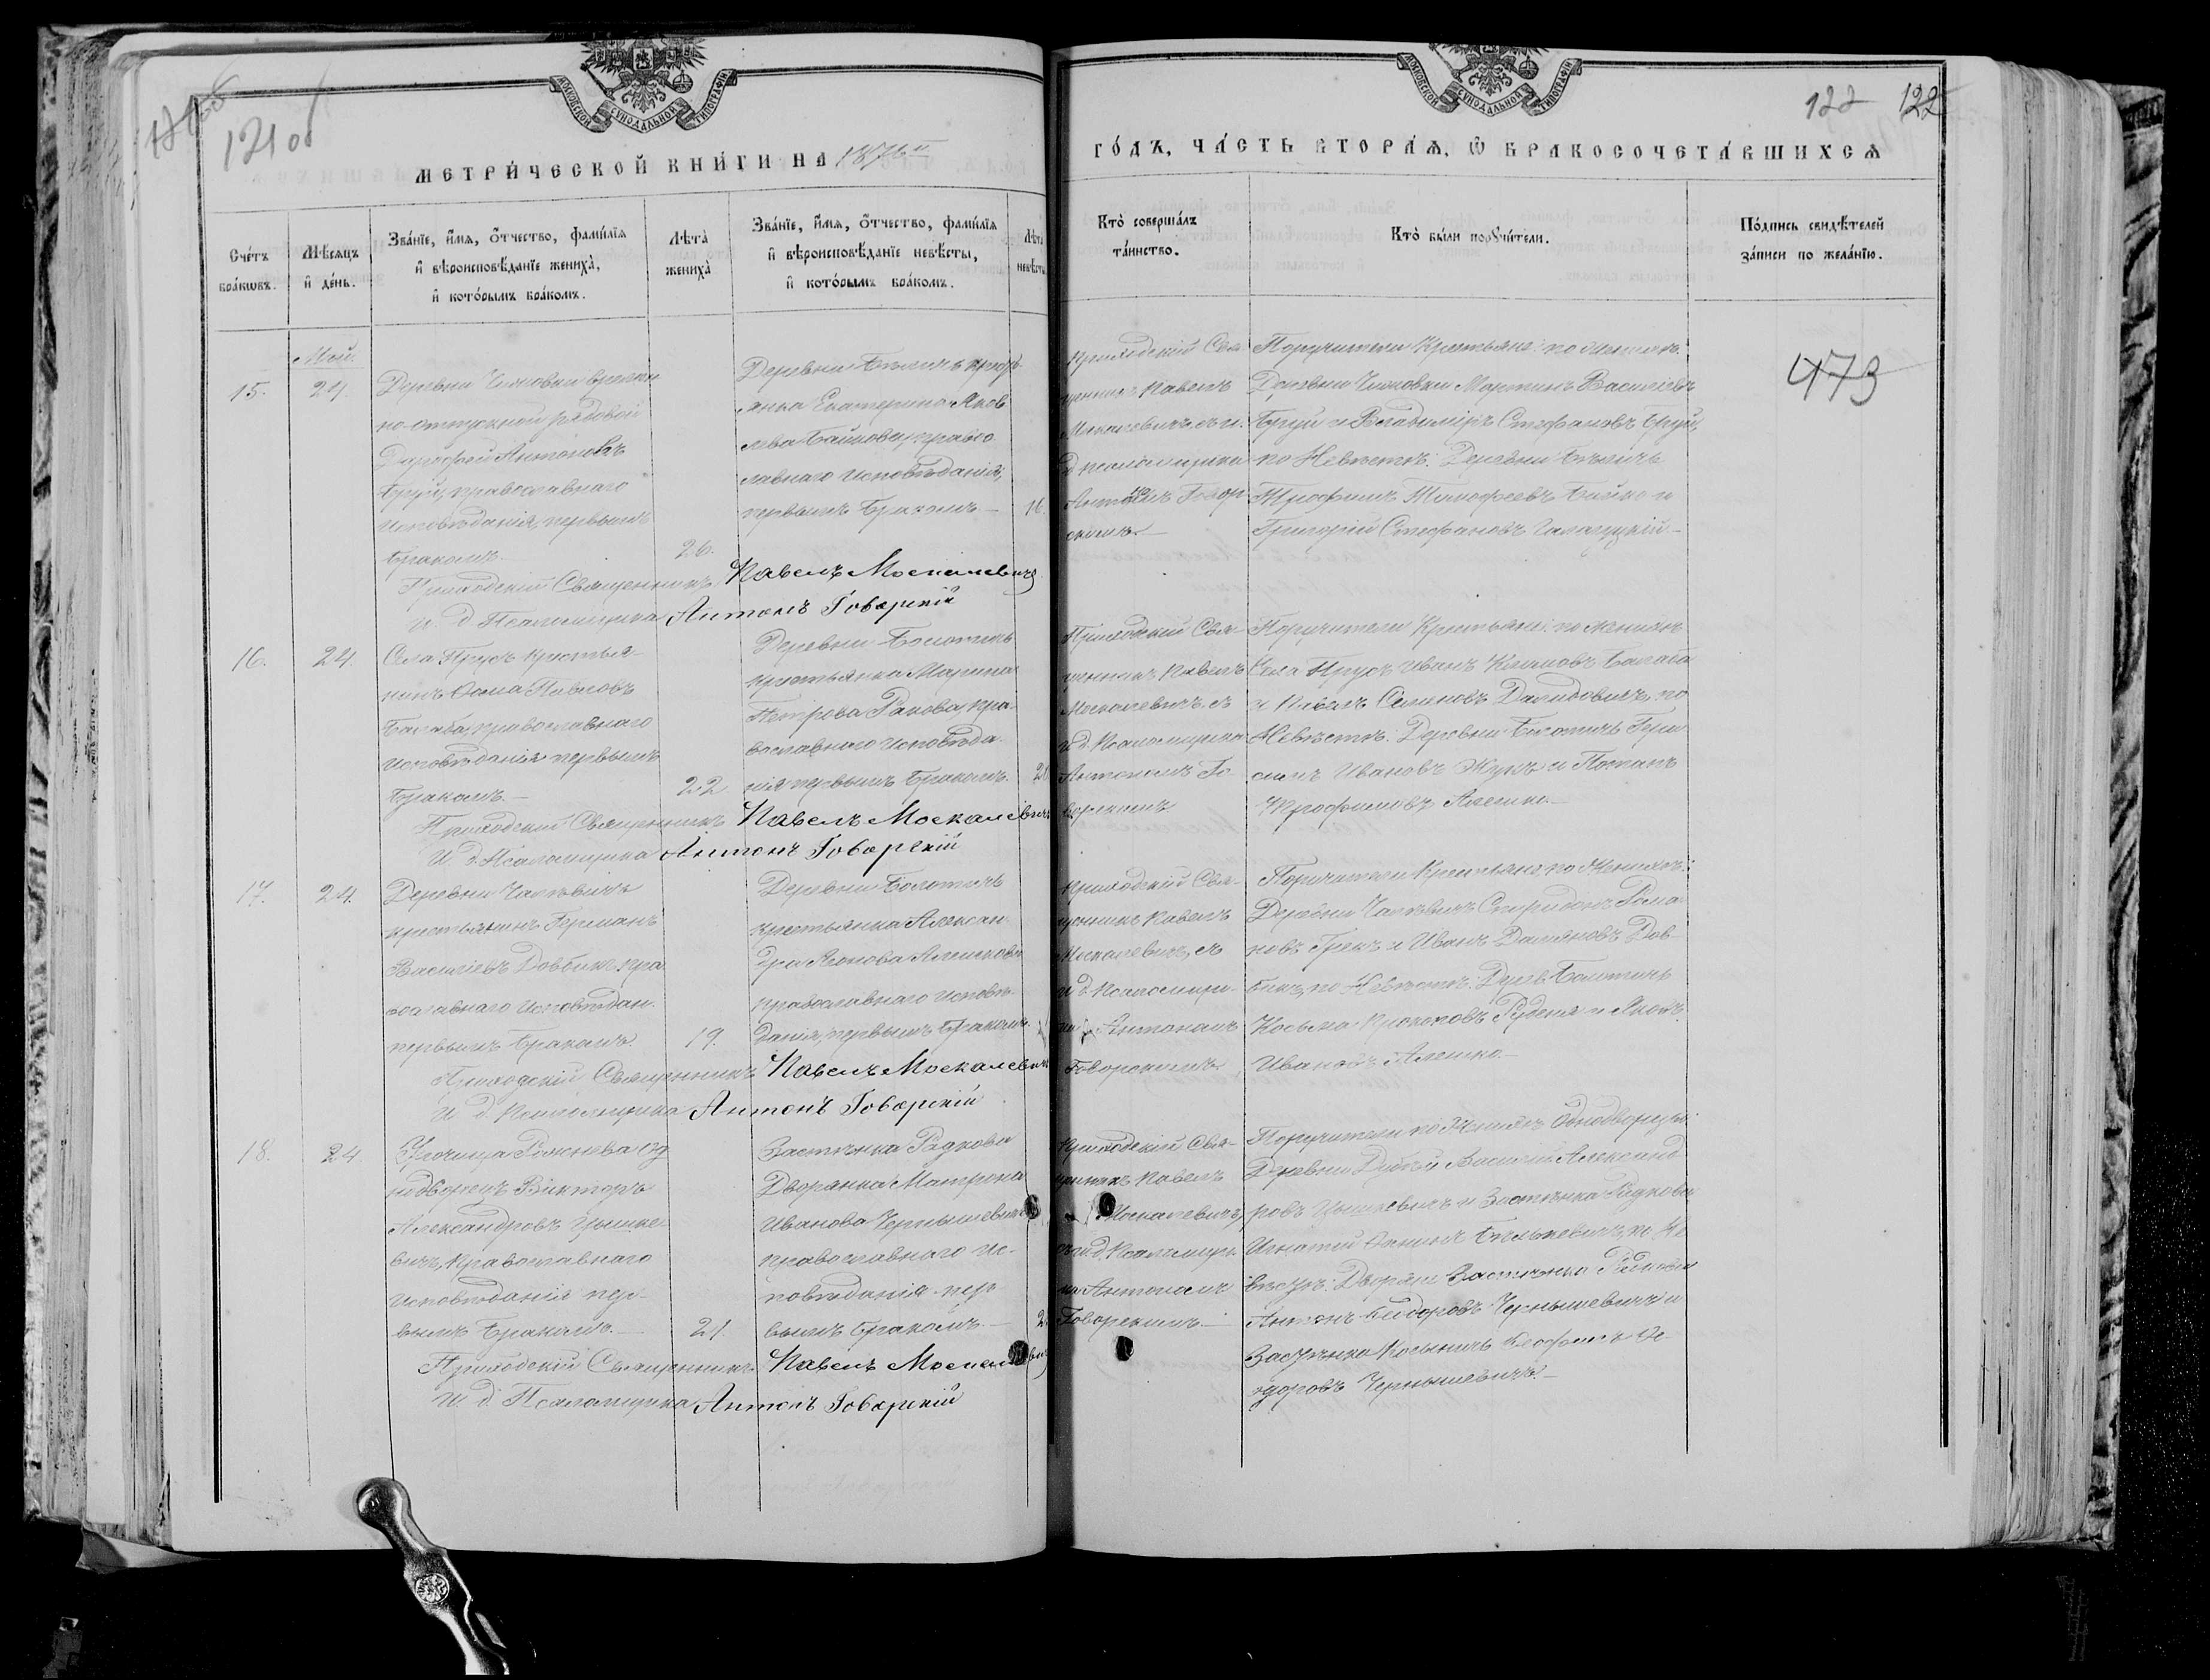 121 об
122 122
МОСКОВСКОЙ СѴНОДАЛЬНОЙ ТИПОГРАФІИ
МОСКОВСКОЙ СѴНОДАЛЬНОЙ ТИПОГРАФІИ
МЕТРИ́ЧЕСКОЙ КНИ́ГИ НА 1876й
ГО́ДЪ, ЧА́СТЬ ВТОРА́Ѧ, Ѽ БРАКОСОЧЕТА́ВШИХСѦ
Сче́тъ бра́кѡвъ.
Мѣ́сѧцъ и҆ де́нь.
Зва́нїе, и҆́мѧ, ѻ҆́тчество, фами́лїѧ и҆ вѣроисповѣ́данїе жениха̀, и҆ кото́рымъ бра́комъ.
Лѣта̀ жениха̀
Зва́нїе, и҆́мѧ, ѻ҆́тчество, фами́лїѧ и҆ вѣроисповѣ́данїе невѣ́сты, и҆ кото́рымъ бра́комъ.
Лѣта̀ невѣ́сты
Кто̀ соверша́лъ та́инство.
Кто̀ бы́ли порꙋчи́тели.
По́дпись свидѣ́телей за́писи по жела́нїю.
473
Май.
15.
24.
Деревни Чижовки времен
но-отпускной рядовой
Дорофей Антоновъ
Бруй, православнаго
исповѣданія, первымъ
бракомъ.
26.
янка Екатерина Яков
лева Байкова, право
славнаго исповѣданія,
первымъ бракомъ —
16.
Приходскій Свя
щенникъ Павелъ
Москалевичъ съ и.
д псаломщика
Антономъ Говор
скимъ —
Поручители Крестьяне: по женихѣ:
Деревни Чижовки Мартинъ Василіевъ
Бруй и Владиміръ Стефановъ Бруй,
по Невѣстѣ: Деревни
Трофимъ Тимофеевъ Байко и
Григорій Стефановъ
Приходскій Священникъ Павелъ Москалевичъ
И. д Псаломщика Антонъ Говорскій
16.
24.
Села Прусъ крестья-
нинъ Ѳома Павловъ
Балаба, православнаго
исповѣданія первымъ
бракомъ. —
22
Деревни Болотичъ
крестьянка Марина
Петрова Ракова, пра
вославнаго исповѣда
нія первымъ бракомъ.
Приходскій Свя-
щенникъ Павелъ
Москалевичъ съ
и д. Псаломщика
Антономъ Го
ворскимъ
Поручители Крестьяне: по женихѣ
Села Прусъ Иванъ Климовъ Балаба
и Павелъ Семеновъ Давидовичъ, по
Невѣстѣ: Деревни Болотичъ Гера
симъ Ивановъ Жукъ и Потапъ
Трофимовъ Алешко —
Приходскій Священникъ Павелъ Москалевичъ
И д. Псаломщика Антонъ Говорскій
17.
24.
крестьянинъ Германъ
Василіевъ Довбикъ, пра
вославнаго исповѣдан.
первымъ бракомъ.
19.
Деревни Болотичъ
крестьянка Алексан
дра Алешкова
православнаго исповѣ-
данія, первымъ бракомъ.
Приходскій Свя-
щенникъ Павелъ
Москалевичъ, съ
и д. Псаломщи-
ка Антономъ
Говорскимъ
Поручители Крестьяне по Женихѣ:
Деревни Спиридонъ Рома
новъ Грекъ и Иванъ Дамяновъ Дов-
бикъ, по Невѣстѣ: Дерев. Болотичъ
Косьма Прокоповъ Рубеня и Яковъ
Ивановъ Алешко —
Приходскій Священникъ Павелъ Москалевичъ
И д. Псаломщика Антонъ Говорскій
18.
24
нодворецъ Викторъ
Александровъ Цышке
вичъ, православнаго
исповѣданія пер-
вымъ бракомъ. —
21.
Застѣнка Радкова
Дворянка Матрона
Иванова Чернышевичъ
православнаго ис-
повѣданія пер
вымъ бракомъ. —
Приходскій Свя-
щенникъ Павелъ
Москалевичъ,
съ и д. Псаломщи
ка Антономъ
Говорскимъ. —
Поручители по Женихѣ Однодворцы:
Деревни Василій Александ
ровъ Цышкевичъ и Застѣнка Радкова
Игнатій Бѣлькевичъ, по Не
вѣстѣ: Дворяне Застѣнка Радкова
Антонъ Ѳеодоровъ Чернышевичъ и
Застѣнка Ѳе
одоровъ Чернышевичъ. —
Приходскій Священникъ Павелъ Москалевичъ
И д. Псаломщика Антонъ Говорскій